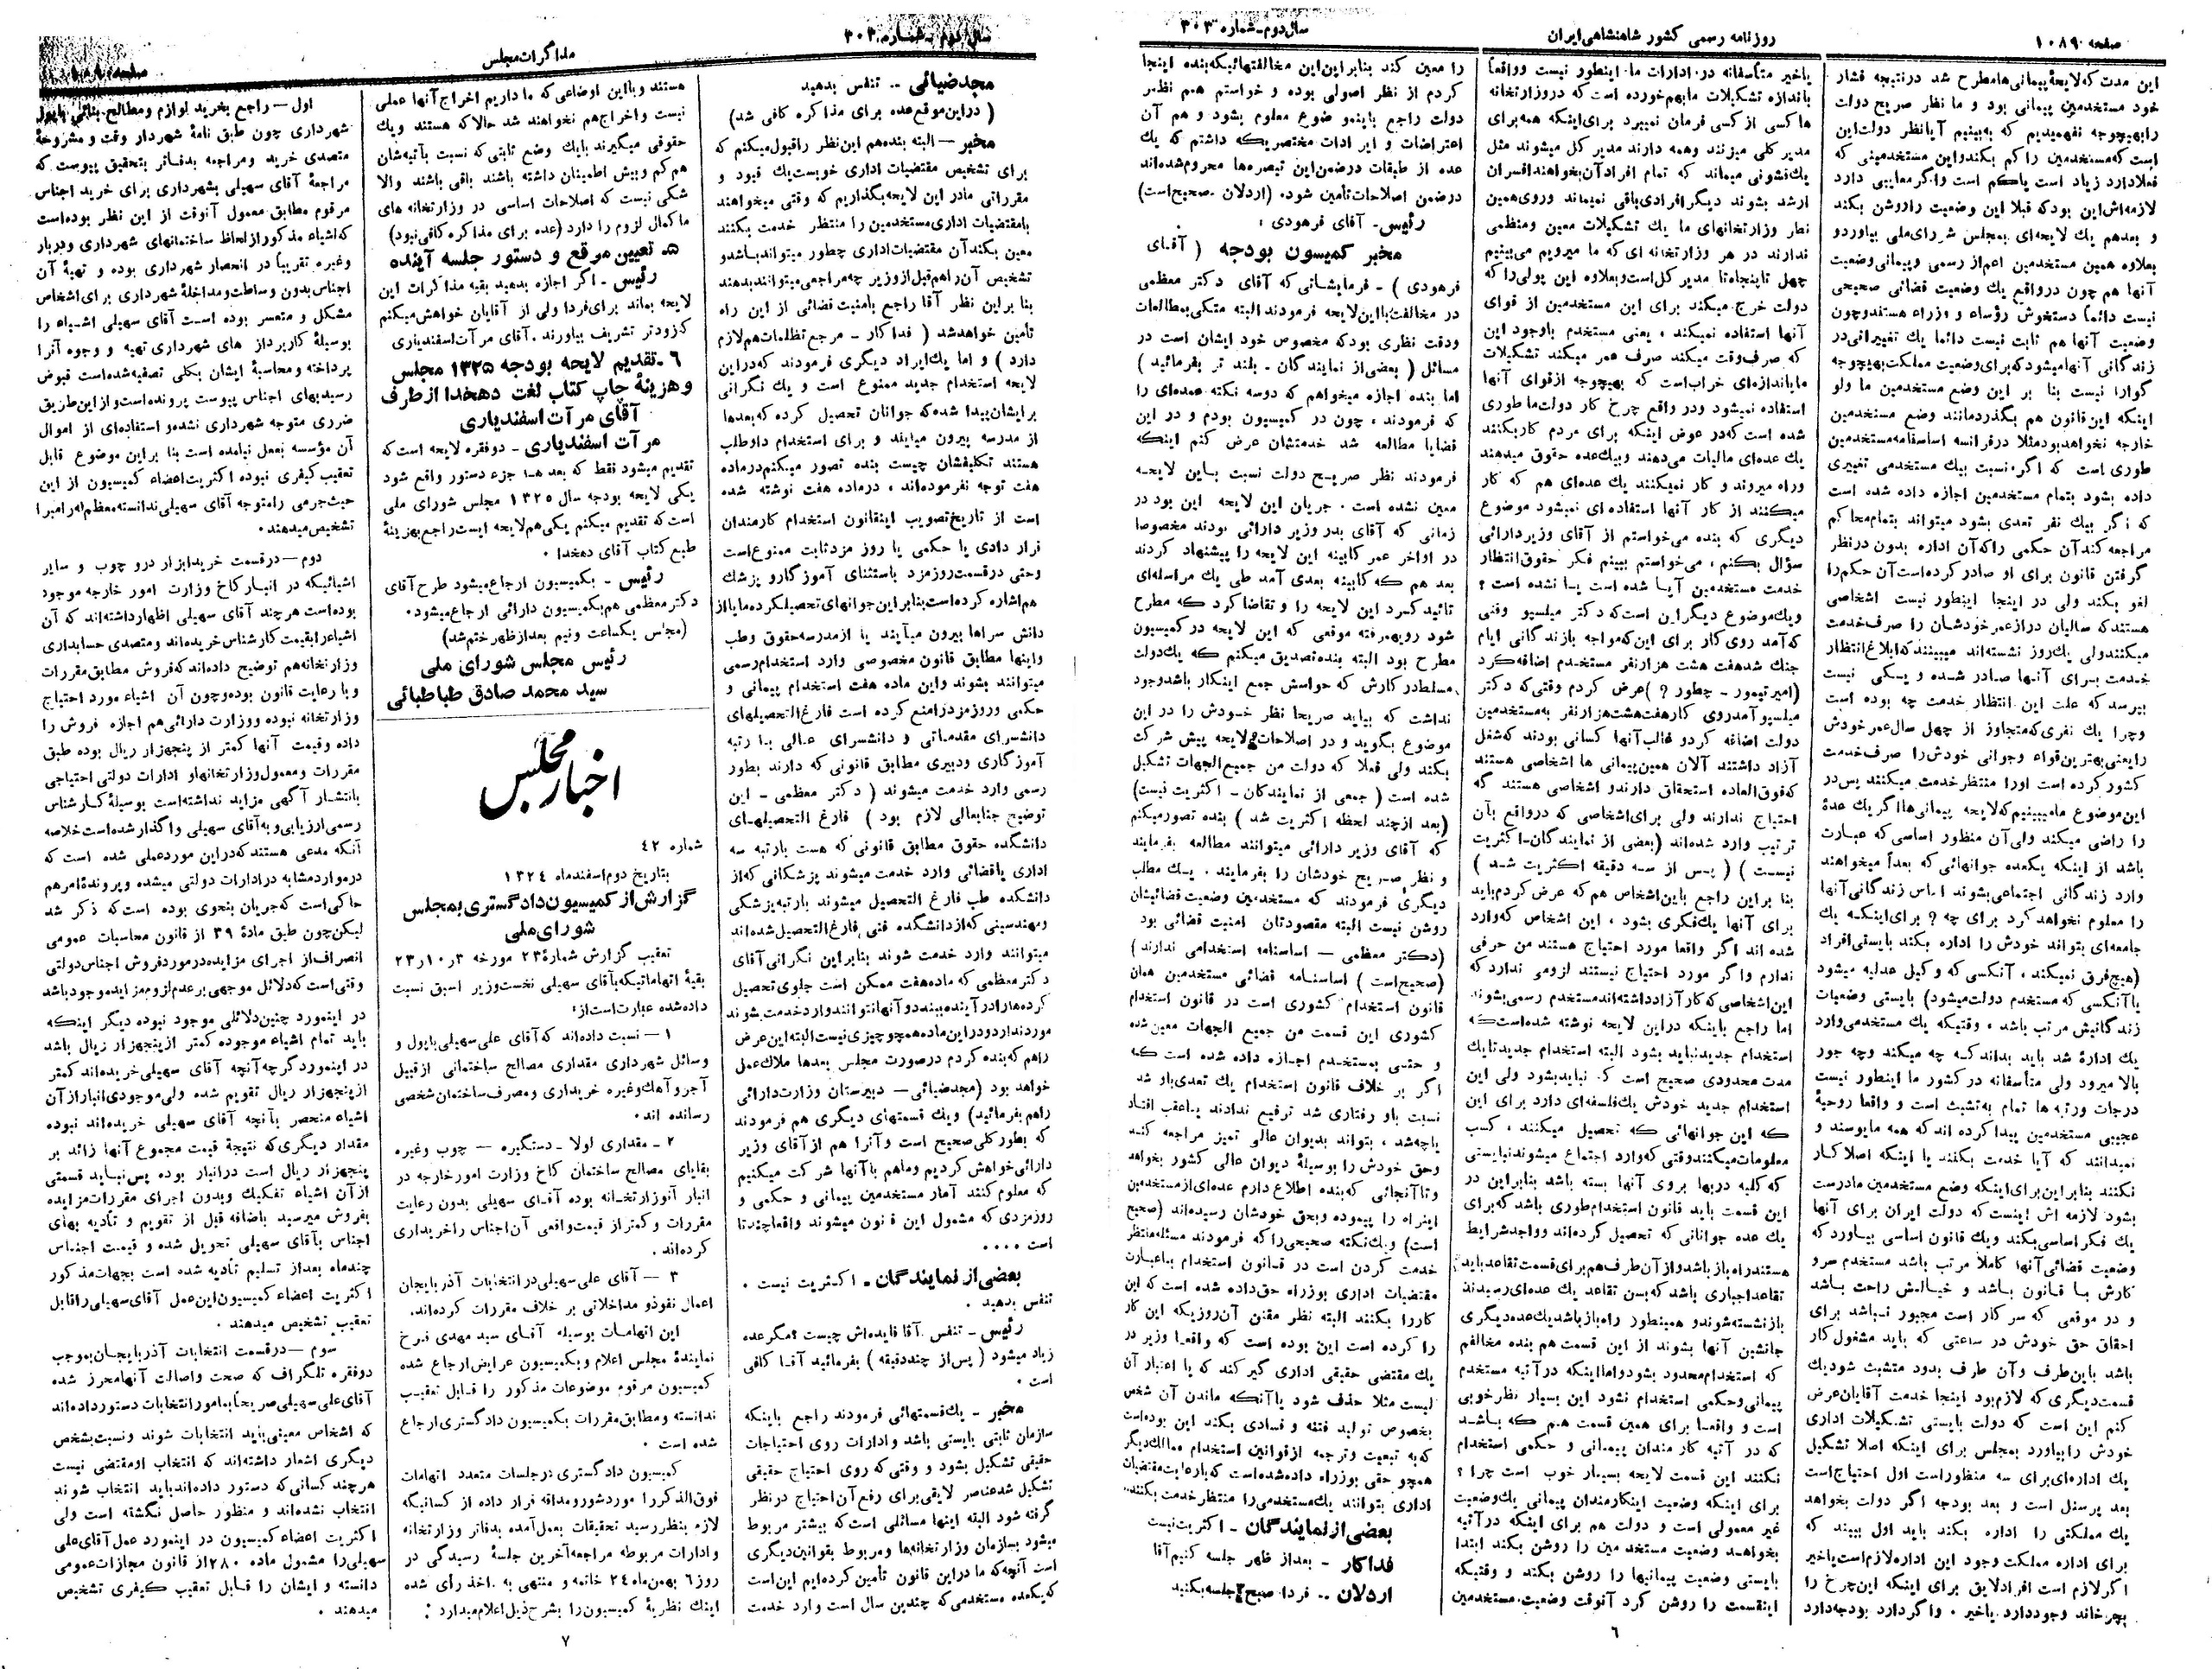 صفحه ۱۰۸۹
روزنامه رسمی کشور شاهنشاهی ایران
سال دوم-شماره ۳۰۳
این مدت که لایحهٔ پیمانی‌ها مطرح شد در نتیجه فشار
خود مستخدمین پیمانی بود و ما نظر صریح دولت
را بهیچوجه نفهمیدیم که به‌بینیم آیا نظر دولت این
است که مستخدمین را کم بکند و این مستخدمینی که
فعلا دارد زیاد است یا کم است و اگر معایبی دارد
لازمه‌اش این بود که قبلا این وضعیت را روشن بکند
و بعد هم یك لایحه‌ای بمجلس شورای ملی بیاورد و
بعلاوه همین مستخدمین اعم از رسمی و پیمانی وضعیت
آنها هم چون در واقع یك وضعیت قضائی صحیحی
نیست دائماً دستخوش رؤساء و وزراء هستند و چون
وضعیت آنها هم ثابت نیست دائما یك تغییراتی در
زندگانی آنها میشود که برای وضعیت مملکت بهیچوجه
گوارا نیست بنا بر این وضع مستخدمین ما ولو
اینکه این قانون هم بگذرد مانند وضع مستخدمین
خارجه نخواهد بود مثلا در فرانسه اساسنامه مستخدمین
طوری است که اگر نسبت بیك مستخدمی تغییری
داده بشود بتمام مستخدمین اجازه داده شده است
که اگر بیك نفر تعدی بشود میتواند بتمام محاکم
مراجعه کند آن حکمی را که آن اداره بدون در نظر
گرفتن قانون برای او صادر کرده است آن حکم را
لغو بکند ولی در اینجا اینطور نیست اشخاصی
هستند که سالیان دراز عمر خودشان را صرف خدمت
میکنند ولی یك روز نشسته‌اند میبینند که ابلاغ انتظار
خدمت برای آنها صادر شده و یکی نیست
بپرسد که علت این انتظار خدمت چه بوده است
و چرا یك نفری که متجاوز از چهل سال عمر خودش
را یعنی بهترین قواء و جوانی خودش را صرف خدمت
کشور کرده است او را منتظر خدمت میکنند پس در
این موضوع ما میبینیم که لایحه پیمانی‌ها اگر یك عدهٔ
را راضی میکند ولی آن منظور اساسی که عبارت
باشد از اینکه یکعده جوانهائی که بعداً میخواهند
وارد زندگانی اجتماعی بشوند اساس زندگانی آنها
را معلوم نخواهد کرد برای چه ؟ برای اینکه یك
جامعه‌ای بتواند خودش را اداره بکند بایستی افراد
(هیچ فرق نمیکند ، آنکسی که وکیل عدلیه میشود
یا آنکسی که مستخدم دولت میشود) بایستی وضعیات
زندگانیش مرتب باشد ، وقتیکه یك مستخدمی وارد
یك ادارهٔ شد باید بداند که چه میکند و چه جور
بالا میرود ولی متأسفانه در کشور ما اینطور نیست
درجات و رتبه ها تمام به تشبث است و واقعا روحیهٔ
عجیبی مستخدمین پیدا کرده اند که همه مایوسند و
نمیدانند که آیا خدمت بکنند یا اینکه اصلا کار
نکنند بنابراین برای اینکه وضع مستخدمین ما درست
بشود لازمه اش اینست که دولت ایران برای آنها
یك فکر اساسی بکند و یك قانون اساسی بیاورد که
وضعیت قضائی آنها کاملا مرتب باشد مستخدم سر و
کارش با قانون باشد و خیالش راحت باشد
و در موقعی که سر کار است مجبور نباشد برای
احقاق حق خودش در ساعتی که باید مشغول کار
باشد باین طرف و آن طرف بدود متشبث شود یك
قسمت دیگری که لازم بود اینجا خدمت آقایان عرض
کنم این است که دولت بایستی تشکیلات اداری
خودش را بیاورد بمجلس برای اینکه اصلا تشکیل
یك اداره‌ای برای سه منظور است اول احتیاج است
بعد پرسنل است و بعد بودجه اگر دولت بخواهد
یك مملکتی را اداره بکند باید اول ببیند که
برای اداره مملکت وجود این اداره لازم است یا خیر
اگر لازم است افراد لایق برای اینکه این چرخ را
بچرخاند وجود دارد یا خیر ، و اگر دارد بودجه دارد
یا خیر متأسفانه در ادارات ما اینطور نیست و واقعاً
باندازه تشکیلات ما بهم خورده است که در وزارتخانه
ها کسی از کسی فرمان نمیبرد برای اینکه همه برای
مدیر کلی میزنند و همه دارند مدیر کل میشوند مثل
یك قشونی میماند که تمام افراد آن بخواهند افسران
ارشد بشوند دیگر افرادی باقی نمیماند و روی همین
نظر وزارتخانهای ما یك تشکیلات معین و منظمی
ندارند در هر وزارتخانه ای که ما میرویم می‌بینیم
چهل تا پنجاه تا مدیر کل است و بعلاوه این پولی را که
دولت خرج میکند برای این مستخدمین از قوای
آنها استفاده نمیکند ، یعنی مستخدم باوجود این
که صرف وقت میکند صرف عمر میکند تشکیلات
ما باندازه‌ای خراب است که بهیچوجه از قوای آنها
استفاده نمیشود و در واقع چرخ کار دولت ما طوری
شده است که در عوض اینکه برای مردم کار بکنند
یك عده‌ای مالیات می‌دهند و بیك عده حقوق میدهند
و راه میروند و کار نمیکنند یك عده‌ای هم که کار
میکنند از کار آنها استفاده ای نمیشود موضوع
دیگری که بنده می‌خواستم از آقای وزیر دارائی
سؤال بکنم ، می‌خواستم ببینم فکر حقوق انتظار
خدمت مستخدمین آیا شده است یا نشده است ؟
و یك موضوع دیگر این است که دکتر میلسپو وقتی
که آمد روی کار برای این که مواجه با زندگانی ایام
جنك شد هفت هشت هزار نفر مستخدم اضافه کرد
(امیر تیمور - چطور ؟ ) عرض کردم وقتی که دکتر
میلسپو آمد روی کار هفت هشت هزار نفر به مستخدمین
دولت اضافه کرد و غالب آنها کسانی بودند که شغل
آزاد داشتند آلان همین پیمانی ها اشخاصی هستند
که فوق العاده استحقاق دارند و اشخاصی هستند که
احتیاج ندارند ولی برای اشخاصی که در واقع بآن
ترتیب وارد شده‌اند (بعضی از نمایندگان-اکثریت
نیست ) ( پس از سه دقیقه اکثریت شد )
بنا براین راجع باین اشخاص هم که عرض کردم باید
برای آنها یك فکری بشود ، این اشخاص که وارد
شده اند اگر واقعا مورد احتیاج هستند من حرفی
ندارم و اگر مورد احتیاج نیستند لزومی ندارد که
این اشخاصی که کار آزاد داشته‌اند مستخدم رسمی بشوند
اما راجع باینکه در این لایحه نوشته شده است که
استخدام جدید نباید بشود البته استخدام جدید تا یك
مدت محدودی صحیح است که نباید بشود ولی این
استخدام جدید خودش یك فلسفه‌ای دارد برای این
که این جوانهائی که تحصیل میکنند ، کسب
معلومات میکنند وقتی که وارد اجتماع میشوند نبایستی
که کلیه دربها بروی آنها بسته باشد بنابراین در
این قسمت باید قانون استخدام طوری باشد که برای
یك عده جوانانی که تحصیل کرده‌اند و واجد شرایط
هستند راه باز باشد و از آن طرف هم برای قسمت تقاعد باید
تقاعد اجباری باشد که بسن تقاعد یك عده‌ای رسیدند
بازنشسته شوند و همینطور راه باز باشد یك عده دیگری
جانشین آنها بشوند از این قسمت هم بنده مخالفم
که استخدام محدود بشود و اما اینکه در آتیه مستخدم
پیمانی و حکمی استخدام نشود این بسیار نظر خوبی
است و واقعاً برای همین قسمت هم که باشد
که در آتیه کارمندان پیمانی و حکمی استخدام
نکنند این قسمت لایحه بسیار خوب است چرا ؟
برای اینکه وضعیت اینکارمندان پیمانی یك وضعیت
غیر معمولی است و دولت هم برای اینکه در آتیه
بخواهد وضعیت مستخدمین را روشن بکند ابتدا
بایستی وضعیت پیمانیها را روشن بکند و وقتیکه
اینقسمت را روشن کرد آنوقت وضعیت مستخدمین
را معین کند بنابراین این مخالفتهائیکه بنده اینجا
کردم از نظر اصولی بوده و خواستم هم نظر
دولت راجع باینموضوع معلوم بشود و هم آن
اعتراضات و ایرادات مختصریکه داشتم که یك
عده از طبقات در ضمن این تبصره‌ها محروم شده‌اند
در ضمن اصلاحات تأمین شود. (اردلان - صحیح است)
رئیس- آقای فرهودی :
مخبر کمیسیون بودجه ( آقای
فرهودی ) - فرمایشاتی که آقای دکتر معظمی
در مخالفت با این لایحه فرمودند البته متکی بمطالعات
و دقت نظری بود که مخصوص خود ایشان است در
مسائل ( بعضی از نمایندگان - بلند تر بفرمائید )
اما بنده اجازه میخواهم که دو سه نکته عمده‌ای را
که فرمودند ، چون در کمیسیون بودم و در این
قضایا مطالعه شد خدمتشان عرض کنم اینکه
فرمودند نظر صریح دولت نسبت باین لایحه
معین نشده است . جریان این لایحه این بود در
زمانی که آقای بدر وزیر دارائی بودند مخصوصا
در اواخر عمر کابینه این لایحه را پیشنهاد کردند
بعد هم که کابینه بعدی آمد طی یك مراسله‌ای
تائید کرد این لایحه را و تقاضا کرد که مطرح
شود رویهمرفته موقعی که این لایحه در کمیسیون
مطرح بود البته بنده تصدیق میکنم که یك دولت
مسلط در کارش که حواسش جمع اینکار باشد وجود
نداشت که بیاید صریحا نظر خودش را در این
موضوع بگوید و در اصلاحات لایحه پیش شرکت
بکند ولی فعلا که دولت من جمیع الجهات تشکیل
شده است ( جمعی از نمایندگان - اکثریت نیست)
(بعد از چند لحظه اکثریت شد ) بنده تصور میکنم
که آقای وزیر دارائی میتوانند مطالعه بفرمایند
و نظر صریح خودشان را بفرمایند . یك مطلب
دیگری فرمودند که مستخدمین وضعیت قضائیشان
روشن نیست البته مقصودتان امنیت قضائی بود
(دکتر معظمی — اساسنامه استخدامی ندارند )
(صحیح است ) اساسنامه قضائی مستخدمین همان
قانون استخدام کشوری است در قانون استخدام
کشوری این قسمت من جمیع الجهات معین شده
و حتی بمستخدم اجازه داده شده است که
اگر بر خلاف قانون استخدام یك تعدی باو شد
نسبت باو رفتاری شد ترفیع ندادند یا عقب افتاد
یا چه شد ، بتواند بدیوان عالی تمیز مراجعه کند
و حق خودش را بوسیلهٔ دیوان عالی کشور بخواهد
و تا آنجائی که بنده اطلاع دارم عده‌ای از مستخدمین
اینراه را پیموده و بحق خودشان رسیده‌اند (صحیح
است) و یك نکته صحیحی را که فرمودند مسئله منتظر
خدمت کردن است در قانون استخدام باعبارت
مقتضیات اداری بوزراء حق داده شده است که این
کار را بکنند البته نظر مقنن آنروزیکه این کار
را کرده است این بوده است که واقعا وزیر در
یك مقتضی حقیقی اداری گیر کند که یا اعتبار آن
لیست مثلا حذف شود یا آنکه ماندن آن شخص
بخصوص تولید فتنه و فسادی بکند این بوده است
که به تبعیت و ترجمه از قوانین استخدام ممالك دیگر
همچو حقی بوزراء داده شده است که بارعایت مقتضیات
اداری بتوانند یك مستخدمی را منتظر خدمت بکنند.
بعضی از نمایندگان - اکثریت نیست
فداکار - بعد از ظهر جلسه کنیم آقا
اردلان - فردا صبح جلسه بکنید
٦
سال دوم - شماره ۳۰۳
مذاکرات مجلس
مجد ضیائی - تنفس بدهید
( در این موقع عده برای مذاکره کافی شد)
مخبر — البته بنده هم این نظر را قبول میکنم که
برای تشخیص مقتضیات اداری خوبست یك قیود و
مقرراتی ما در این لایحه بگذاریم که وقتی میخواهند
بامقتضیات اداری مستخدمین را منتظر خدمت بکنند
معین بکند آن مقتضیات اداری چطور میتواند باشد و
تشخیص آن را هم قبل از وزیر چه مراجعی میتوانند بدهند
بنا براین نظر آقا راجع بامنیت قضائی از این راه
تأمین خواهد شد ( فداکار - مرجع تظلمات هم لازم
دارد ) و اما یك ایراد دیگری فرمودند که در این
لایحه استخدام جدید ممنوع است و یك نگرانی
برایشان پیدا شده که جوانان تحصیل کرده که بعدها
از مدرسه بیرون میآیند و برای استخدام داوطلب
هستند تکلیفشان چیست بنده تصور میکنم در ماده
هفت توجه نفرموده‌اند ، در ماده هفت نوشته شده
است از تاریخ تصویب اینقانون استخدام کارمندان
قراردادی یا حکمی یا روز مزد ثابت ممنوع است
و حتی در قسمت روزمزد باستثنای آموزگار و پزشك
هم اشاره کرده است بنابراین جوانهای تحصیلکرده ما یا از
دانش سراها بیرون میآیند یا از مدرسه حقوق و طب
و اینها مطابق قانون مخصوصی وارد استخدام رسمی
میتوانند بشوند و این ماده هفت استخدام پیمانی و
حکمی و روزمزد را منع کرده است فارغ التحصیلهای
دانشسرای مقدماتی و دانشسرای عالی با رتبه
آموزگاری و دبیری مطابق قانونی که دارند بطور
رسمی وارد خدمت میشوند ( دکتر معظمی - این
توضیح جنابعالی لازم بود ) فارغ التحصیلهای
دانشکده حقوق مطابق قانونی که هست بارتبه سه
اداری یا قضائی وارد خدمت میشوند پزشکانی که از
دانشکده طب فارغ التحصیل میشوند بارتبه پزشکی
و مهندسینی که از دانشکده فنی فارغ التحصیل شده‌اند
میتوانند وارد خدمت شوند بنابراین نگرانی آقای
دکتر معظمی که ماده هفت ممکن است جلوی تحصیل
کرده‌ها را در آینده ببندد و آنها نتوانند وارد خدمت بشوند
مورد ندارد و در این ماده همچو چیزی نیست البته این عرض
را هم که بنده کردم در صورت مجلس بعدها ملاك عمل
خواهد بود (مجد ضیائی — دبیرستان وزارت دارائی
را هم بفرمائید) و یك قسمتهای دیگری هم فرمودند
که بطور کلی صحیح است و آنرا هم از آقای وزیر
دارائی خواهش کردیم و ما هم با آنها شرکت میکنیم
که معلوم کنند آمار مستخدمین پیمانی و حکمی و
روزمزدی که مشمول این قانون میشوند واقعا چند تا
است . . . .
بعضی از نمایندگان - اکثریت نیست .
تنفس بدهید .
رئیس - تنفس آقا فایده‌اش چیست ؟ مگر عده
زیاد میشود ( پس از چند دقیقه ) بفرمائید آقا کافی
است .
مخبر - یك قسمتهائی فرمودند راجع باینکه
سازمان ثابتی بایستی باشد و ادارات روی احتیاجات
حقیقی تشکیل بشود و وقتی که روی احتیاج حقیقی
تشکیل شد عناصر لایقی برای رفع آن احتیاج در نظر
گرفته شود البته اینها مسائلی است که بیشتر مربوط
میشود بسازمان وزارتخانه‌ها و مربوط بقوانین دیگری
است آنچه که ما در این قانون تأمین کرده‌ایم این است
که یکعده مستخدمی که چندین سال است وارد خدمت
هستند و با این اوضاعی که ما داریم اخراج آنها عملی
نیست و اخراج هم نخواهند شد حالا که هستند و یك
حقوقی میگیرند بایك وضع ثابتی که نسبت بآتیه شان
هم کم و بیش اطمینان داشته باشند باقی باشند والا
شکی نیست که اصلاحات اساسی در وزارتخانه های
ما کمال لزوم را دارد (عده برای مذاکره کافی نبود)
۵- تعیین موقع و دستور جلسه آینده
رئیس - اگر اجازه بدهید بقیه مذاکرات این
لایحه بماند برای فردا ولی از آقایان خواهش میکنم
که زودتر تشریف بیاورند . آقای مرآت اسفندیاری
٦ - تقدیم لایحه بودجه ۱۳۲۵ مجلس
و هزینهٔ چاپ کتاب لغت دهخدا از طرف
آقای مرآت اسفندیاری
مرآت اسفندیاری - دو فقره لایحه است که
تقدیم میشود فقط که بعدها جزء دستور واقع شود
یکی لایحه بودجه سال ۱۳۲۵ مجلس شورای ملی
است که تقدیم میکنم یکی هم لایحه ایست راجع بهزینهٔ
طبع کتاب آقای دهخدا .
رئیس - بکمیسیون ارجاع میشود طرح آقای
دکتر معظمی هم بکمیسیون دارائی ارجاع میشود.
(مجلس یکساعت و نیم بعد از ظهر ختم شد)
رئیس مجلس شورای ملی
سید محمد صادق طباطبائی
اخبار مجلس
شماره ٤٢
بتاریخ دوم اسفند ماه ۱۳۲٤
گزارش از کمیسیون دادگستری بمجلس
شورای ملی
تعقیب گزارش شمارهٔ ۲۳ مورخه ۳ر۱۰ر۲۳
بقیهٔ اتهاماتیکه بآقای سهیلی نخست وزیر اسبق نسبت
داده شده عبارت است از:
۱ — نسبت داده‌اند که آقای علی سهیلی با پول و
وسائل شهرداری مقداری مصالح ساختمانی از قبیل
آجر و آهك و غیره خریداری و مصرف ساختمان شخصی
رسانده اند .
۲ - مقداری لولا - دستگیره — چوب و غیره
بقایای مصالح ساختمان کاخ وزارت امور خارجه در
انبار آنوزارتخانه بوده آقای سهیلی بدون رعایت
مقررات و کمتر از قیمت واقعی آن اجناس را خریداری
کرده‌اند .
۳ — آقای علی سهیلی در انتخابات آذربایجان
اعمال نفوذ و مداخلاتی بر خلاف مقررات کرده‌اند.
این اتهامات بوسیله آقای سید مهدی فرخ
نمایندهٔ مجلس اعلام و بکمیسیون عرایض ارجاع شده
کمیسیون مرقوم موضوعات مذکور را قابل تعقیب
ندانسته و مطابق مقررات بکمیسیون دادگستری ارجاع
شده است .
کمیسیون دادگستری در جلسات متعدد اتهامات
فوق الذکر را مورد شور و مداقه قرار داده از کسانیکه
لازم بنظر رسید تحقیقات بعمل آمده بدفاتر وزارتخانه
و ادارات مربوطه مراجعه آخرین جلسهٔ رسیدگی در
روز ٦ بهمن ماه ۲٤ خاتمه و منتهی به اخذ رأی شده
اینك نظریهٔ کمیسیون را بشرح ذیل اعلام میدارد :
اول — راجع بخرید لوازم و مصالح بنائی با پول
شهرداری چون طبق نامهٔ شهردار وقت و مشروحهٔ
متصدی خرید و مراجعه بدفاتر بتحقیق پیوست که
مراجعهٔ آقای سهیلی بشهرداری برای خرید اجناس
مرقوم مطابق معمول آنوقت از این نظر بوده است
که اشیاء مذکور از لحاظ ساختمانهای شهرداری و دربار
و غیره تقریباً در انحصار شهرداری بوده و تهیهٔ آن
اجناس بدون وساطت و مداخلهٔ شهرداری برای اشخاص
مشکل و متعسر بوده است آقای سهیلی اشیاء را
بوسیلهٔ کارپردازهای شهرداری تهیه و وجوه آنرا
پرداخته و محاسبهٔ ایشان بکلی تصفیه شده است قبوض
رسید بهای اجناس پیوست پرونده است و از این طریق
ضرری متوجه شهرداری نشده و استفاده‌ای از اموال
آن مؤسسه بعمل نیامده است بنا براین موضوع قابل
تعقیب کیفری نبوده اکثریت اعضاء کمیسیون از این
حیث جرمی را متوجه آقای سهیلی ندانسته معظم‌له را مبرا
تشخیص میدهند .
دوم — در قسمت خرید ابزار در و چوب و سایر
اشیائیکه در انبار کاخ وزارت امور خارجه موجود
بوده است هر چند آقای سهیلی اظهار داشته‌اند که آن
اشیاء را بقیمت کارشناس خریده‌اند و متصدی حسابداری
وزارتخانه هم توضیح داده‌اند که فروش مطابق مقررات
و با رعایت قانون بوده و چون آن اشیاء مورد احتیاج
وزارتخانه نبوده و وزارت دارائی هم اجازه فروش را
داده و قیمت آنها کمتر از پنجهزار ریال بوده طبق
مقررات و معمول وزارتخانها و ادارات دولتی احتیاجی
بانتشار آگهی مزاید نداشته است بوسیلهٔ کارشناس
رسمی ارزیابی و به آقای سهیلی واگذار شده است خلاصه
آنکه مدعی هستند که در این مورد عملی شده است که
در موارد مشابه در ادارات دولتی میشده و پروندهٔ امر هم
حاکی است که جریان بنحوی بوده است که ذکر شد
لیکن چون طبق مادهٔ ۳۹ از قانون محاسبات عمومی
انصراف از اجرای مزایده در مورد فروش اجناس دولتی
وقتی است که دلائل موجهی بر عدم لزوم مزایده موجود باشد
در اینمورد چنین دلائلی موجود نبوده دیگر اینکه
باید تمام اشیاء موجوده کمتر از پنجهزار ریال باشد
در اینمورد گرچه آنچه آقای سهیلی خریده‌اند کمتر
از پنجهزار ریال تقویم شده ولی موجودی انبار از آن
اشیاء منحصر بآنچه آقای سهیلی خریده‌اند نبوده
مقدار دیگری که نتیجهٔ قیمت مجموع آنها زائد بر
پنجهزار ریال است در انبار بوده پس نباید قسمتی
از آن اشیاء تفکیك و بدون اجرای مقررات مزایده
بفروش میرسید باضافه قبل از تقویم و تأدیه بهای
اجناس بآقای سهیلی تحویل شده و قیمت اجناس
چند ماه بعد از تسلیم تأدیه شده است بجهات مذکور
اکثریت اعضاء کمیسیون این عمل آقای سهیلی را قابل
تعقیب تشخیص میدهند .
سوم — در قسمت انتخابات آذربایجان بموجب
دو فقره تلگراف که صحت و اصالت آنها محرز شده
آقای علی سهیلی صریحاً بمامور انتخابات دستور داده‌اند
که اشخاص معینی باید انتخابات شوند و نسبت بشخص
دیگری اشعار داشته‌اند که انتخاب او مقتضی نیست
هر چند کسانی که دستور داده‌اند باید انتخاب شوند
انتخاب نشده‌اند و منظور حاصل نگشته است ولی
اکثریت اعضاء کمیسیون در اینمورد عمل آقای علی
سهیلی را مشمول ماده ۲۸۰ از قانون مجازات عمومی
دانسته و ایشان را قابل تعقیب کیفری تشخیص
میدهند .
٧